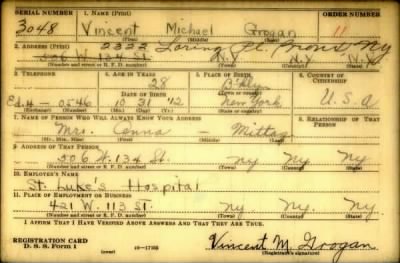 SERIAL NUMBER 1. NAME (Print) ORDER NUMBER
3048 Vincent Michael Grogan 11
(First) (Middle) (Last)
2. ADDRESS (Print) 2322 Loring Pl. Bronx Ny
506 W. 134 St. N.Y. N.Y.
(Number and street or R. F. D. number) (Town) (County) (State)
3. TELEPHONE 4. AGE IN YEARS 5. PLACE OF BIRTH 6. COUNTRY OF CITIZENSHIP
28 Bklyn
DATE OF BIRTH (Town or county)
Ed.4-0546 10 31 '12 New York U.S.A
(Exchange) (Number) (Mo.) (Day) (Yr.) (State or country)
7. NAME OF PERSON WHO WILL ALWAYS KNOW YOUR ADDRESS 8. RELATIONSHIP OF THAT PERSON
Mrs. Anna - Mittag
(Mr., Mrs., Miss) (First) (Middle) (Last)
9. ADDRESS OF THAT PERSON
506 W. 134 St. Ny Ny Ny
(Number and street or R. F. D. number) (Town) (County) (State)
10. EMPLOYER'S NAME
St. Luke's Hospital
11. PLACE OF EMPLOYMENT OR BUSINESS
421 W. 113 St. Ny. Ny. Ny
(Number and street or R. F. D. number) (Town) (County) (State)
I AFFIRM THAT I HAVE VERIFIED ABOVE ANSWERS AND THAT THEY ARE TRUE.
REGISTRATION CARD
D. S. S. Form 1 Vincent M. Grogan
(Registrant's signature)